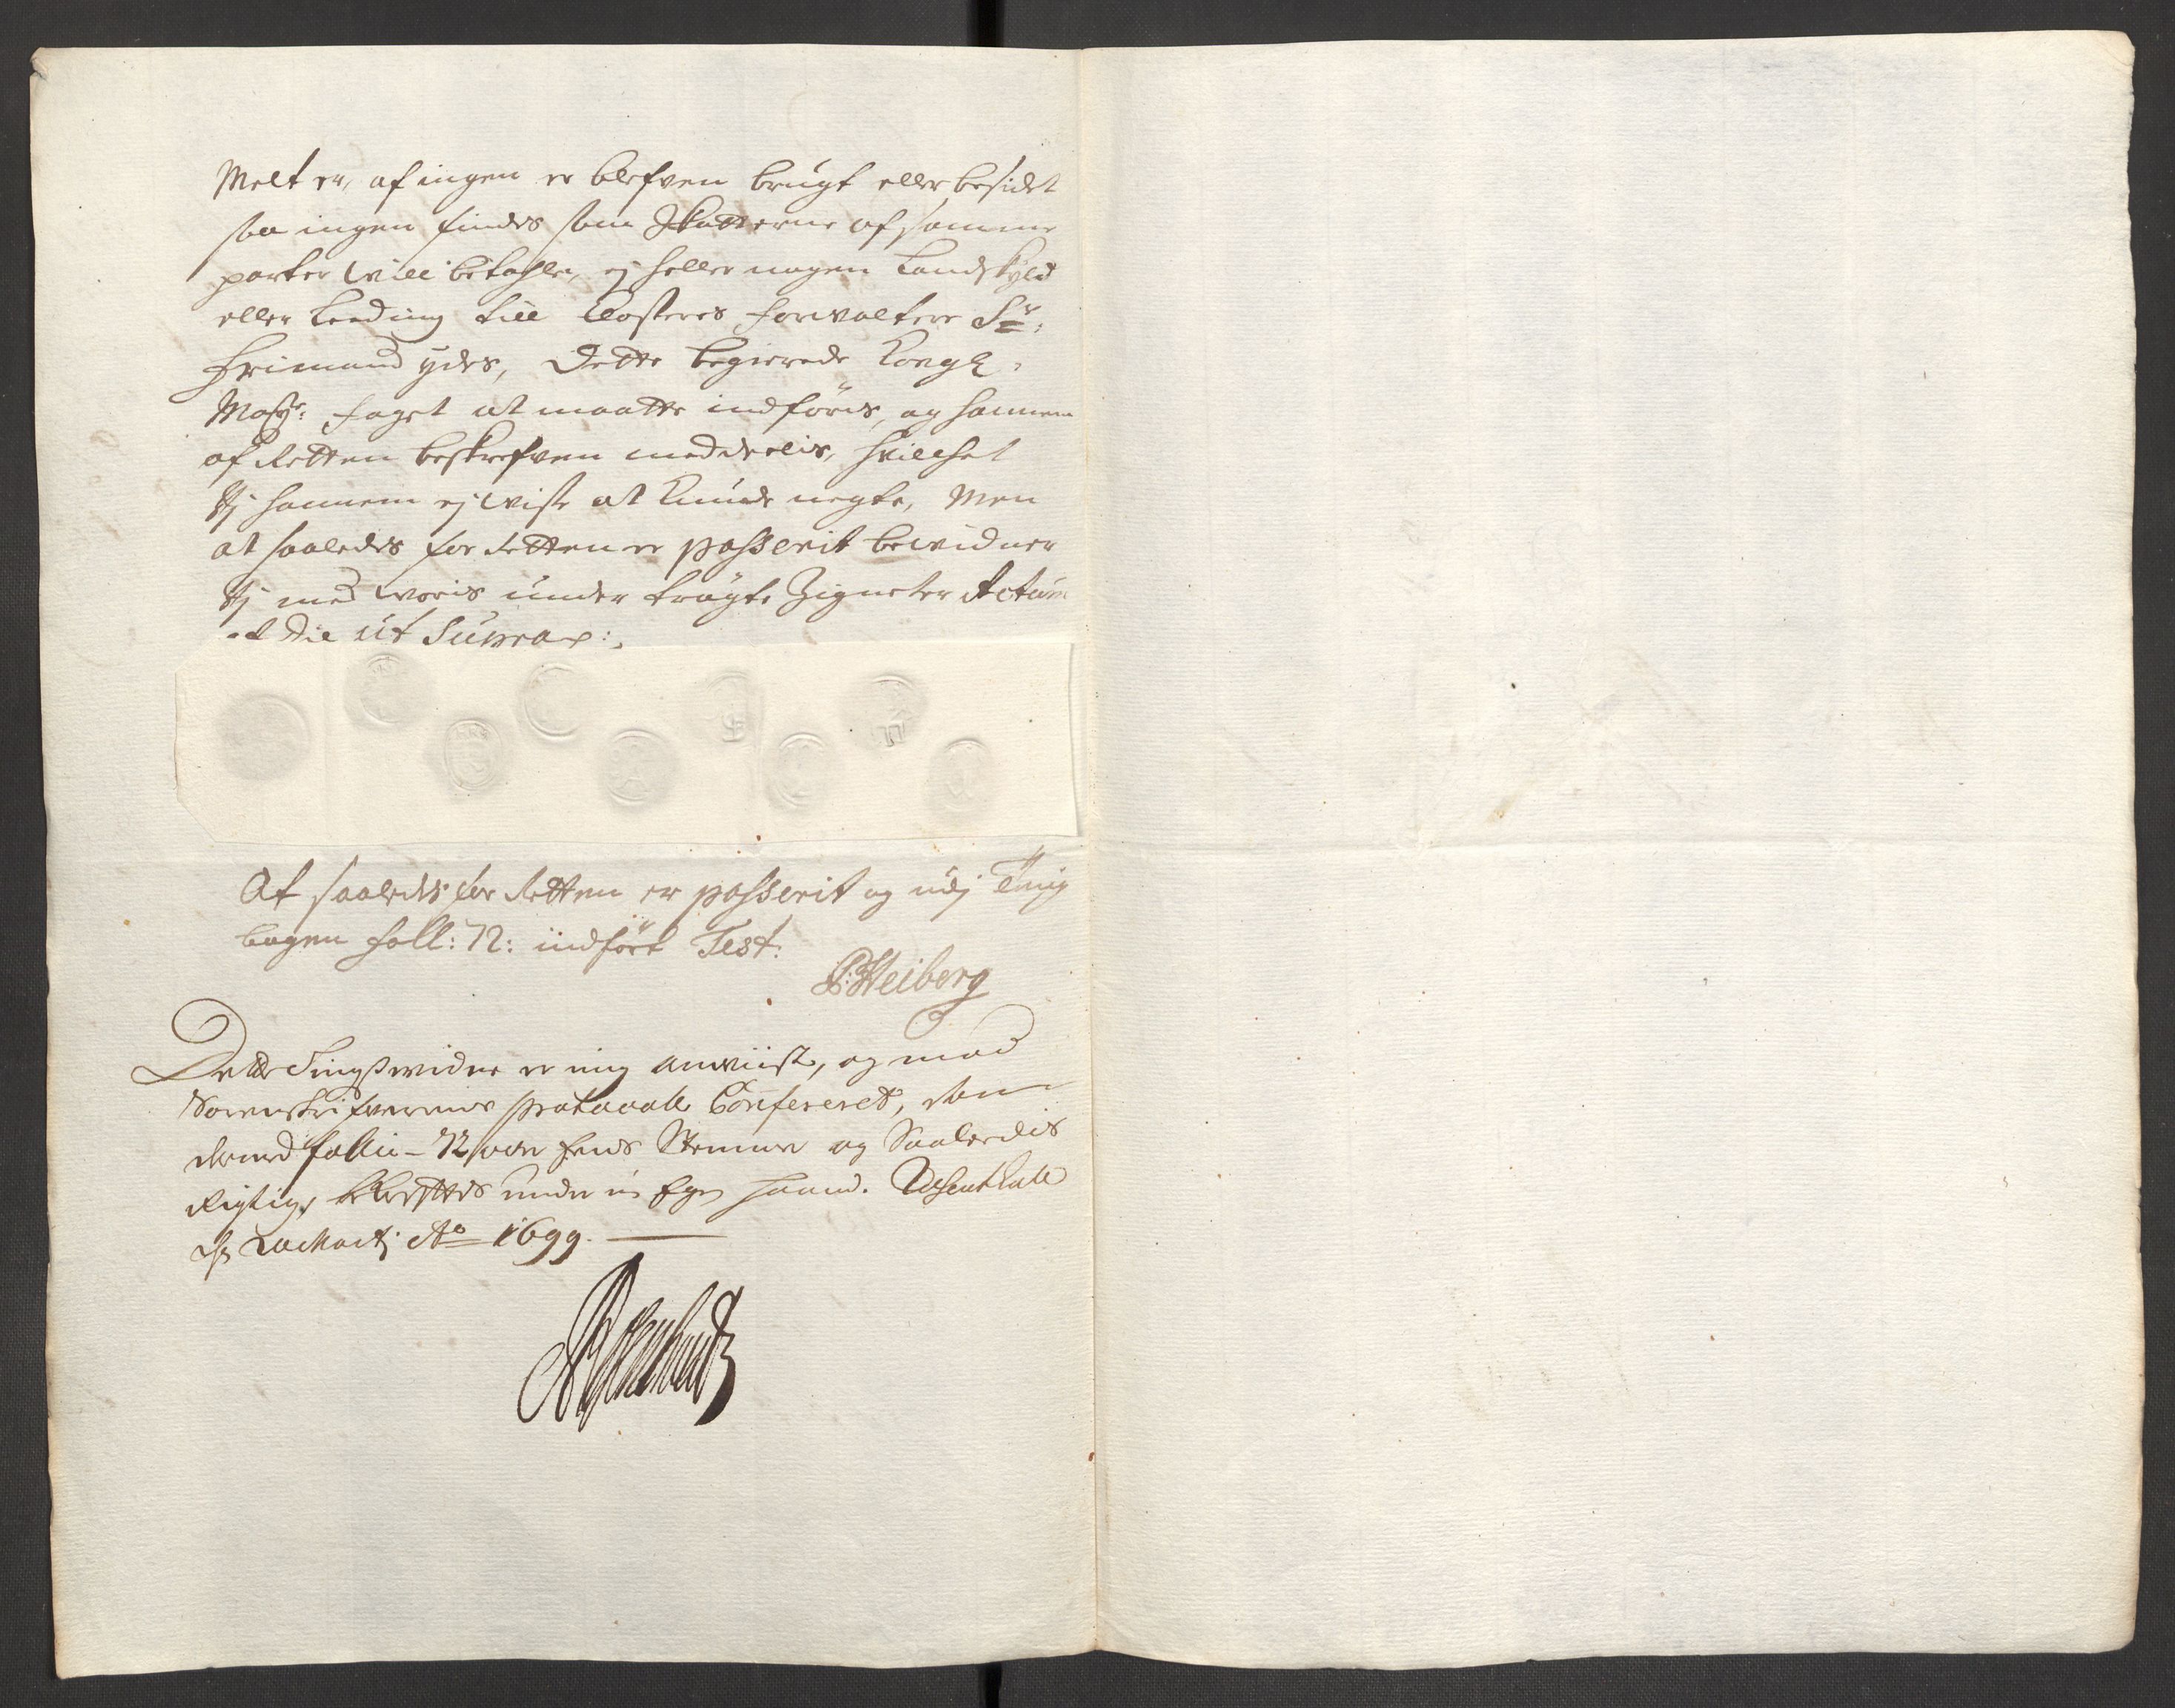 Melt er, af ingen er blefven brugt eller besidet
saa ingen findes som Skatterne af samme
parter will betahle, ej heller nogen Landskyld
eller Leeding till Closteres forvaltere Sr:
Frimand ydes, Dette begierede Kongl:
Mayts: foget at maatte indføris, og hannem
af Retten beskrefven meddeelis, hvilchet
Vj hannem ej wiste at kunde negte, Men
at saaledes for Retten er passerit bevidner
Vj med woris under trøgte Zigneter Actum
et Die ut Supra:
At saaledes for Retten er passerit og udj Ting
bogen foll: 72: indført Test:
P: Heiberg
Dette Tingswidne er mig anviist, og med
Sorenskrifverens protocoll Confereret, som
dermed follio 72 ofver Eens Stemmer og Saaledis
Rigtig, bekreftes under min Egen haand.
Martj Ao 1699.